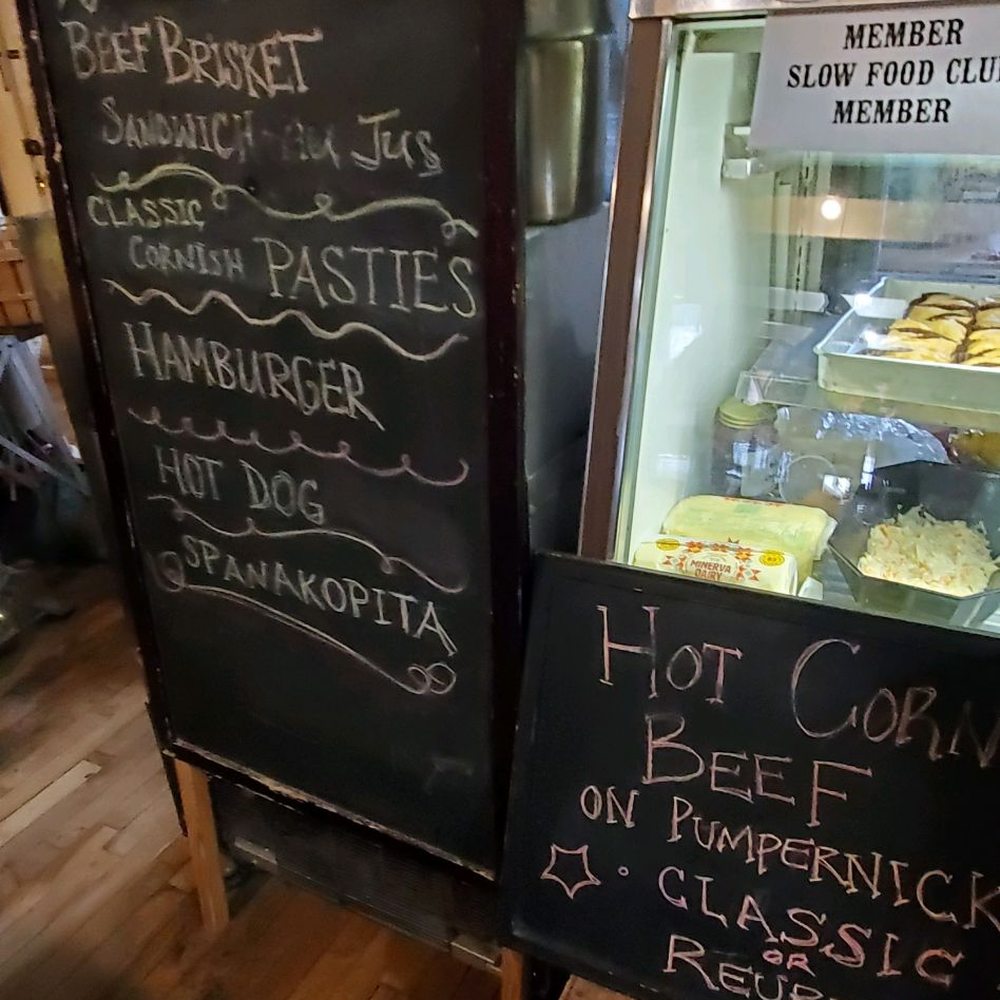 BEEF BRISKET
SANDWICH au JUS
CLASSIC
CORNISH PASTIES
HAMBURGER
HOT DOG
SPANAKOPITA
MEMBER
SLOW FOOD CLU
MEMBER
MINERVA
DAIRY
HOT CORN
BEEF
ON PUMPERNICK
CLASSIC
OR
REUB